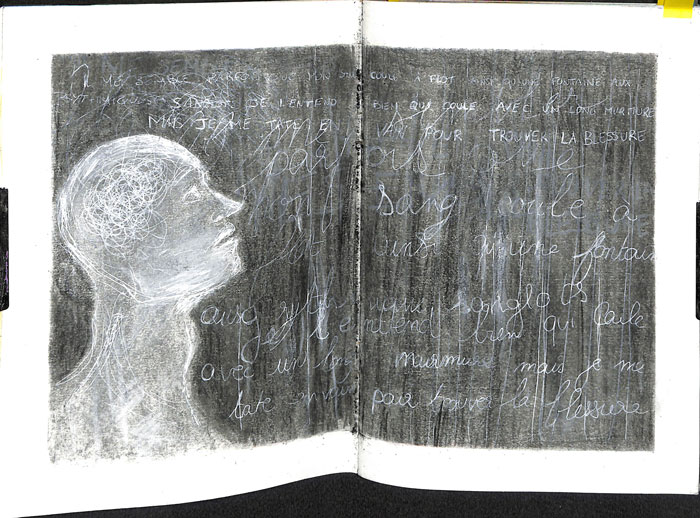 IL ME SEMBLE PARFOIS QUE MON SANG COULE A FLOT AINSI QU'UNE FONTAINE AUX
RYTHMIQUES SANGLOT JE L'ENTEND BIEN QUI COULE AVEC UN LONG MURMURE
MAIS JE ME TATE EN VAIN POUR TROUVER LA BLESSURE
parfois que
mon sang coule a
flot ainsi qu'une fontain
aux sanglots
je l'entend bien qui coule
avec un long murmure mais je me
tate en vain pour trouver la blessure